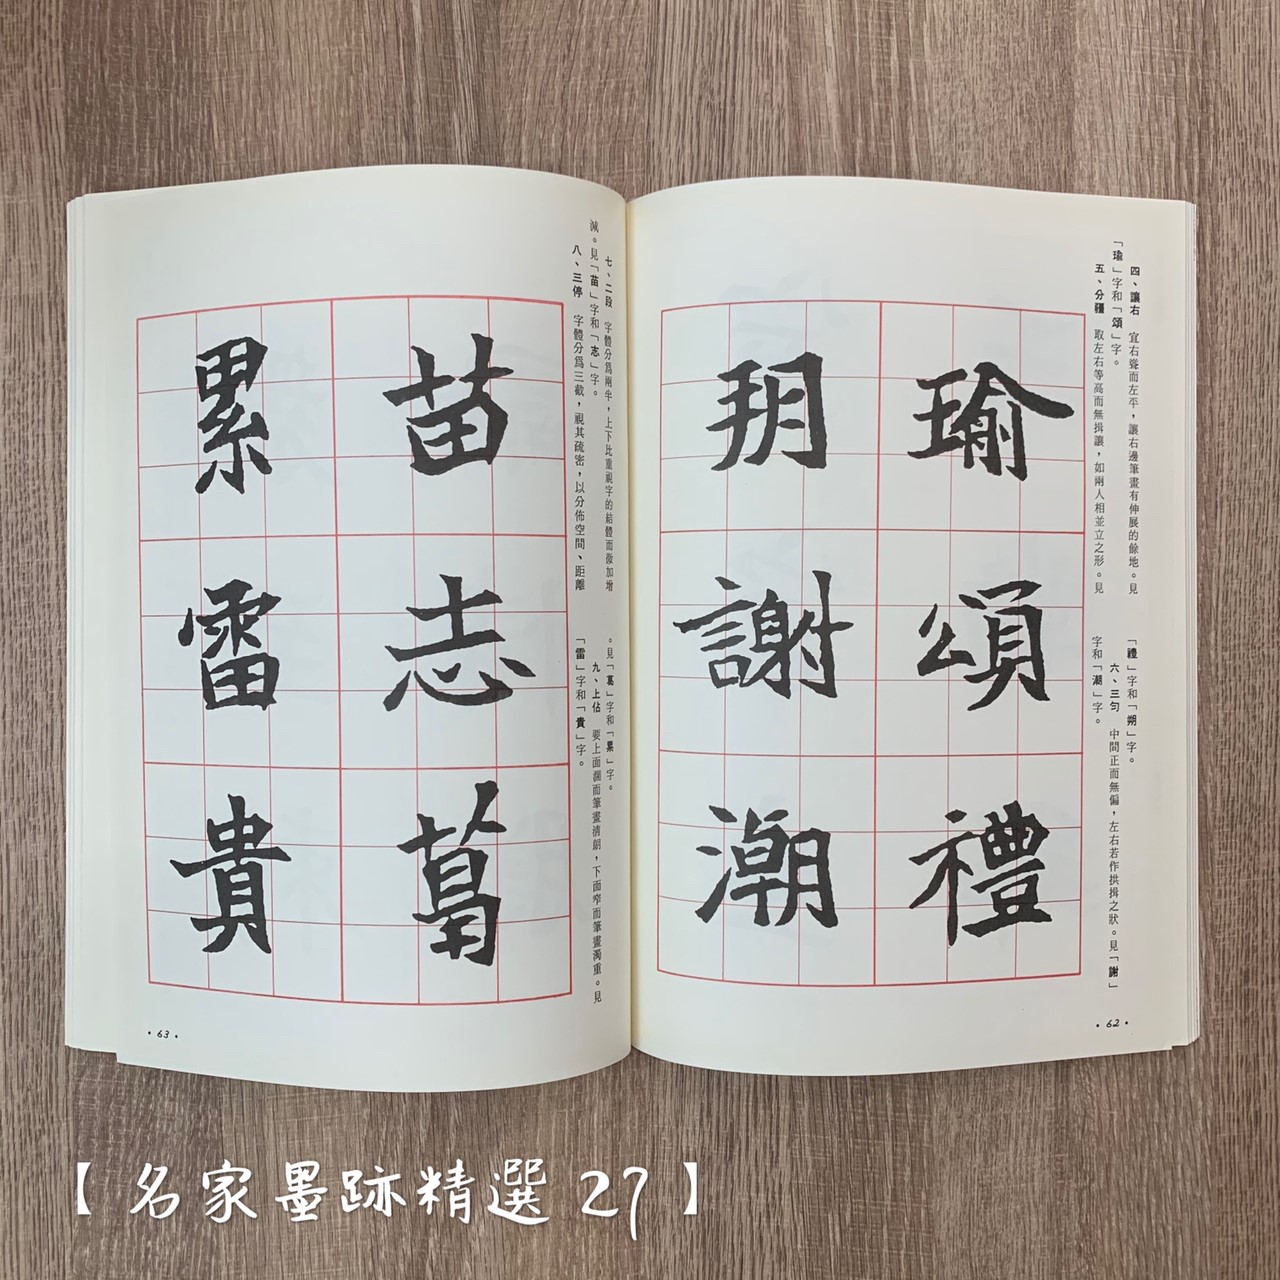 四、讓右　宜右聳而左平，讓右邊筆畫有伸展的餘地。見
「瑜」字和「頌」字。
五、分疆　取左右等高而無揖讓，如兩人相並立之形。見
「禮」字和「朔」字。
六、三勻　中間正而無偏，左右若作拱揖之狀。見「謝」
字和「潮」字。
瑜頌禮
朔謝潮
•62•
七、二段　字體分爲兩半，上下比重視字的結體而微加增
減。見「苗」字和「志」字。
八、三停　字體分爲三截，視其疏密，以分佈空間、距離
。見「葛」字和「累」字。
九、上佔　要上面濶而筆畫清朗，下面窄而筆畫濁重。見
「雷」字和「貴」字。
苗志葛
累雷貴
•63•
【名家墨跡精選 27】